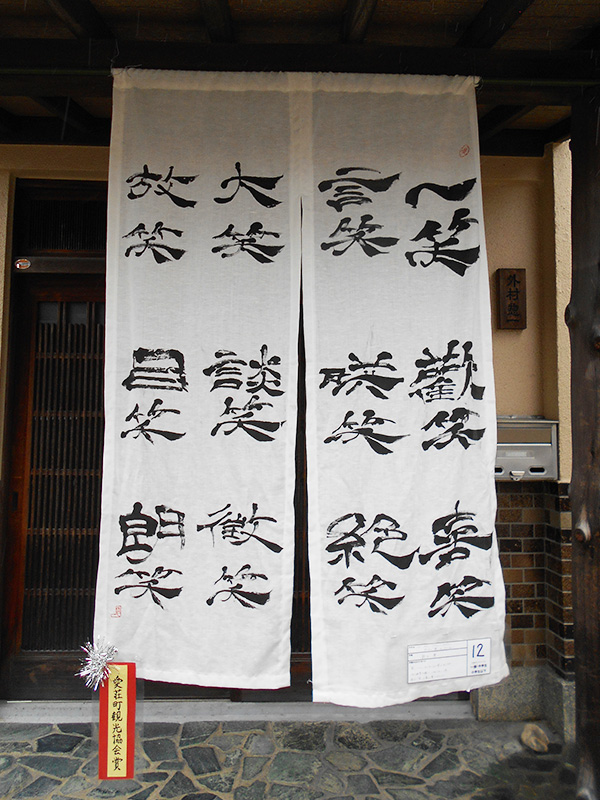 一笑
歡笑
喜笑
言笑
哄笑
絶笑
大笑
談笑
微笑
故笑
目笑
朗笑
外村
12
愛荘町観光協会賞